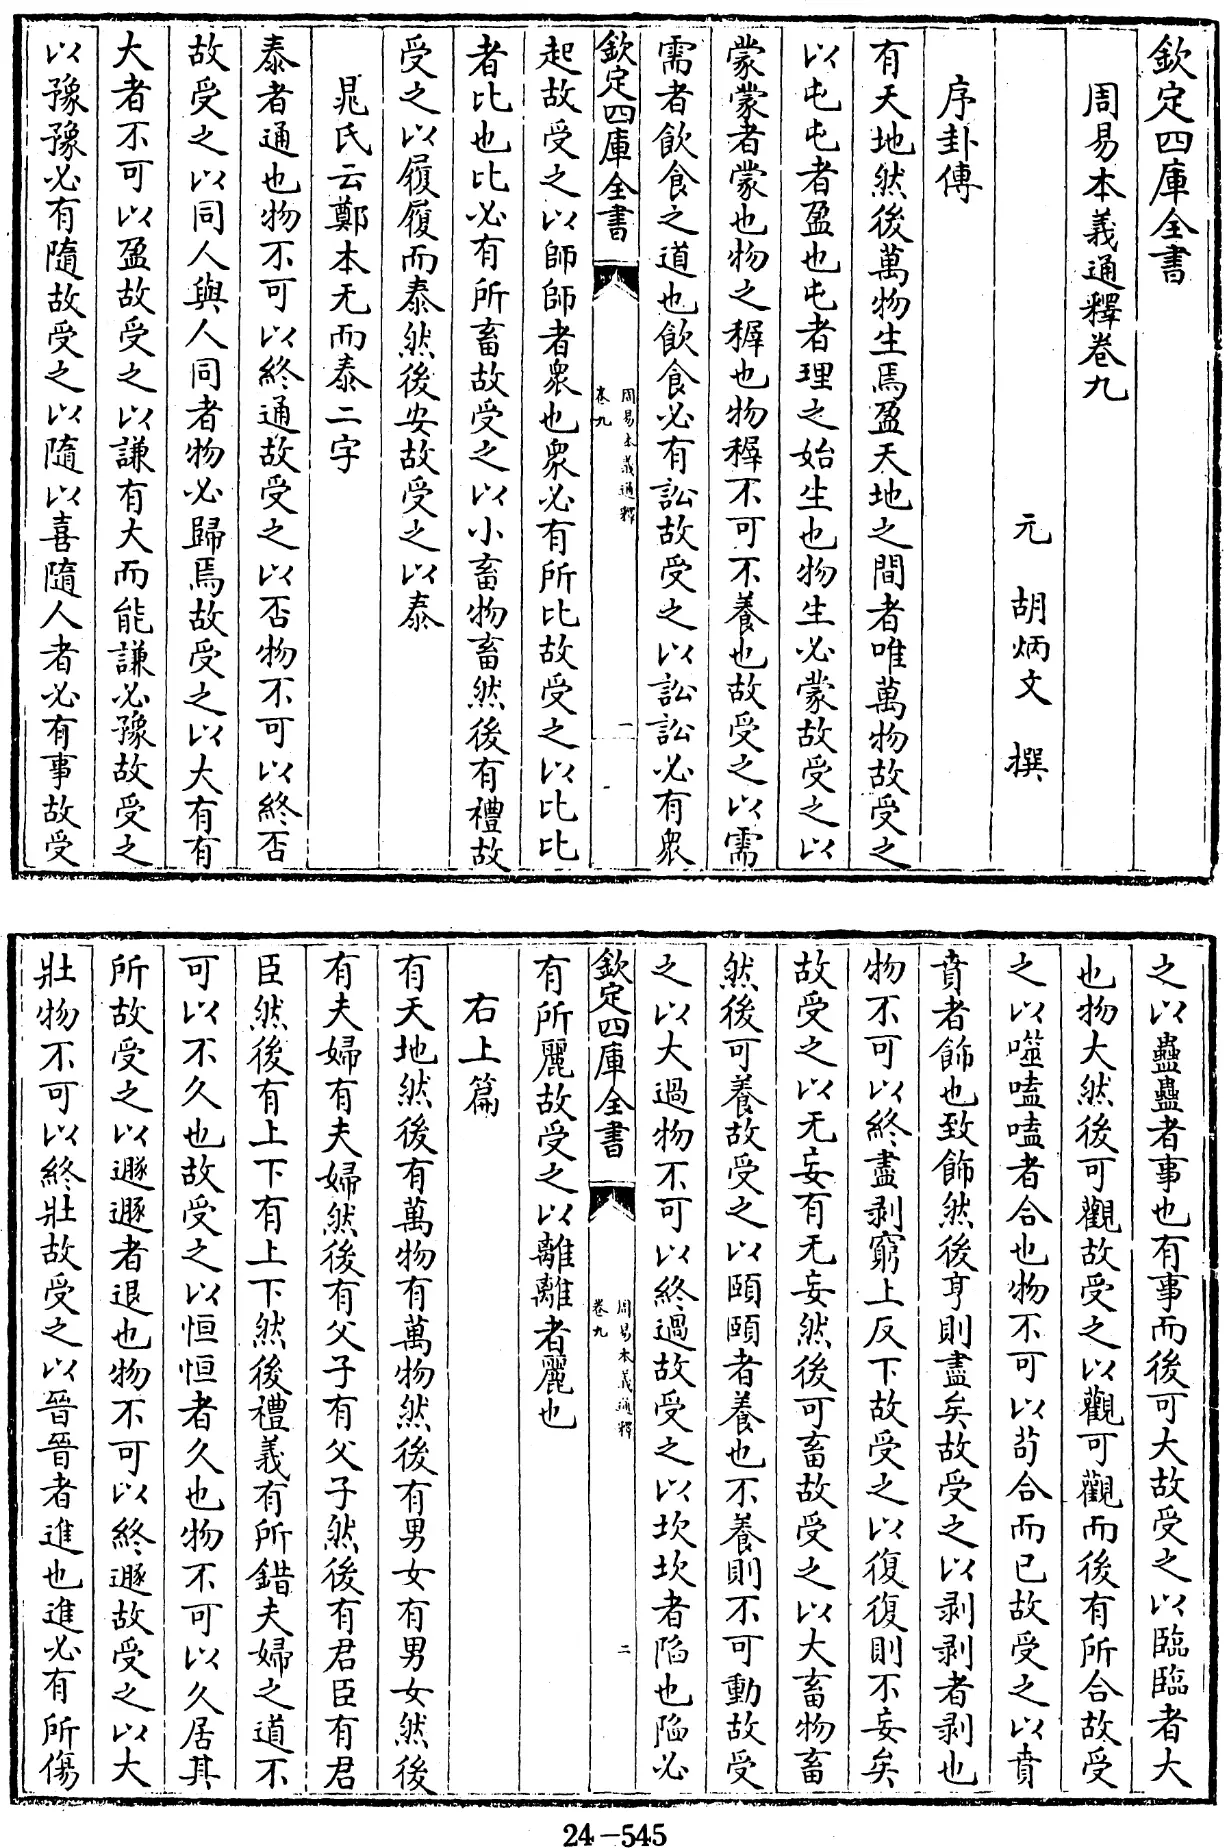 欽定四庫全書
周易本義通釋卷九
元 胡炳文 撰
序卦傳
有天地然後萬物生焉盈天地之間者唯萬物故受之
以屯屯者盈也屯者理之始生也物生必蒙故受之以
蒙蒙者蒙也物之穉也物穉不可不養也故受之以需
需者飲食之道也飲食必有訟故受之以訟訟必有衆
欽定四庫全書
周易本義通釋
卷九
一
起故受之以師師者衆也衆必有所比故受之以比比
者比也比必有所畜故受之以小畜物畜然後有禮故
受之以履履而泰然後安故受之以泰
晁氏云鄭本无而泰二字
泰者通也物不可以終通故受之以否物不可以終否
故受之以同人與人同者物必歸焉故受之以大有有
大者不可以盈故受之以謙有大而能謙必豫故受之
以豫豫必有隨故受之以隨以喜隨人者必有事故受
之以蠱蠱者事也有事而後可大故受之以臨臨者大
也物大然後可觀故受之以觀可觀而後有所合故受
之以噬嗑嗑者合也物不可以苟合而已故受之以賁
賁者飾也致飾然後亨則盡矣故受之以剥剥者剥也
物不可以終盡剥窮上反下故受之以復復則不妄矣
故受之以无妄有无妄然後可畜故受之以大畜物畜
然後可養故受之以頤頤者養也不養則不可動故受
之以大過物不可以終過故受之以坎坎者陷也陷必
欽定四庫全書
周易本義通釋
卷九
二
有所麗故受之以離離者麗也
右上篇
有天地然後有萬物有萬物然後有男女有男女然後
有夫婦有夫婦然後有父子有父子然後有君臣有君
臣然後有上下有上下然後禮義有所錯夫婦之道不
可以不久也故受之以恒恒者久也物不可以久居其
所故受之以遯遯者退也物不可以終遯故受之以大
壯物不可以終壯故受之以晉晉者進也進必有所傷
24-545